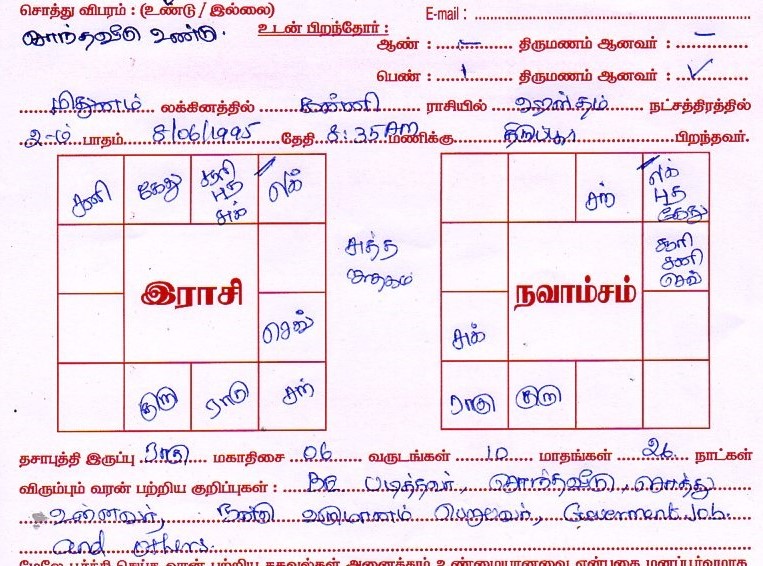 சொத்து விபரம் : (உண்டு / இல்லை) E-mail :
சொந்தவீடு உண்டு. உடன் பிறந்தோர் :
ஆண் : – திருமணம் ஆனவர் : –
பெண் : 1 திருமணம் ஆனவர் : ✓
மிதுனம் லக்கினத்தில் கன்னி ராசியில் ஹஸ்தம் நட்சத்திரத்தில்
2-ம் பாதம் 8/06/1995 தேதி 8:35 AM மணிக்கு பிறந்தவர்.
சனி கேது சூரி புத சுக் லக்
சுத்த ஜாதகம்
இராசி
செவ்
குரு ராகு சந்
சந் லக் புத கேது
சூரி சனி செவ்
நவாம்சம்
சுக்
ராகு குரு
தசாபுத்தி இருப்பு மகாதிசை 06 வருடங்கள் 10 மாதங்கள் 26 நாட்கள்
விரும்பும் வரன் பற்றிய குறிப்புகள் : BE படித்தவர், சொந்தவீடு, சொத்து
உள்ளவர், நல்ல வருமானம் பெறுபவர், Government Job.
and others.